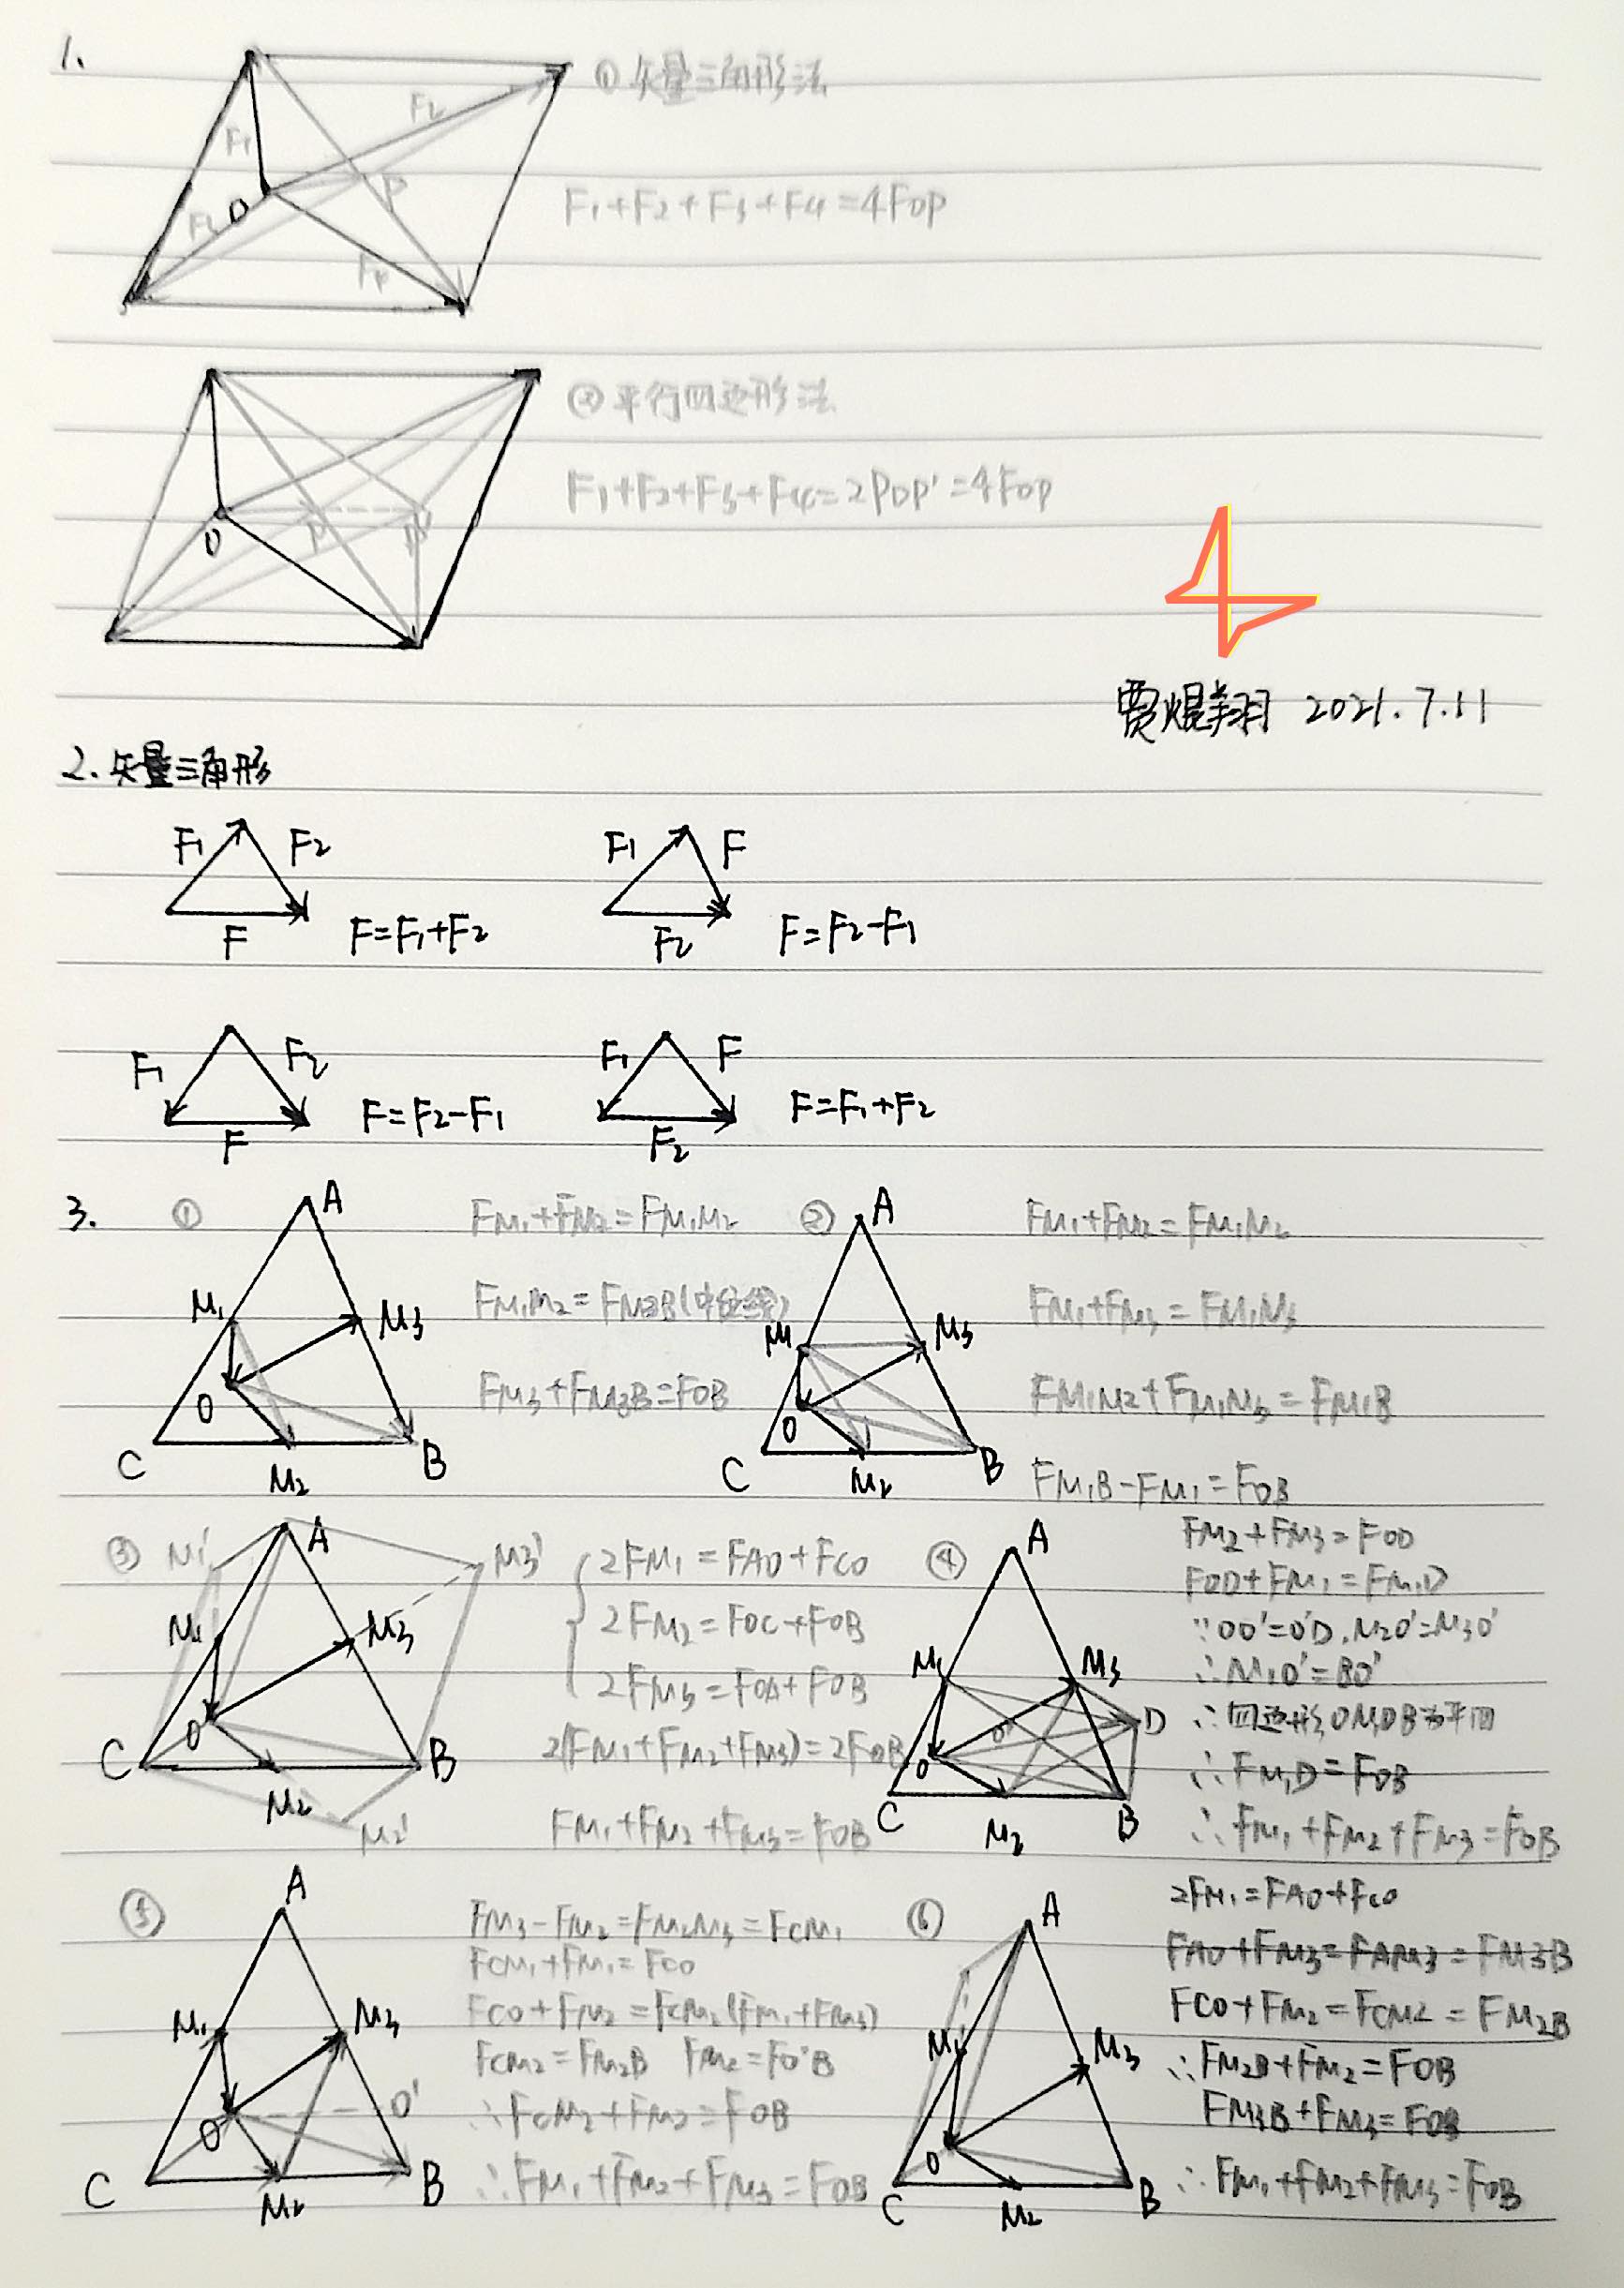 1.
① 矢量三角形法
F1
F2
F3
O
P
F4
F1+F2+F3+F4=4FOP
② 平行四边形法
O
P
P'
F1+F2+F3+F4=2FOP'=4FOP
贾焜翔 2021.7.11
2.矢量三角形
F1 F2
F
F=F1+F2
F1 F
F2
F=F2-F1
F1 F2
F
F=F2-F1
F1 F
F2
F=F1+F2
3.
①
A
M1
M3
O
C
M2
B
FM1+FM2=FM1M2
FM1M2=FM3B(中位线)
FM3+FM3B=FOB
②
A
M1
M3
O
C
M2
B
FM1+FM2=FM1M2
FM1+FM3=FM1M3
FM1M2+FM1M3=FM1B
FM1B-FM1=FOB
③
M1'
A
M3'
M1
M3
O
C
B
M2
M2'
2FM1=FAO+FCO
2FM2=FOC+FOB
2FM3=FOA+FOB
2(FM1+FM2+FM3)=2FOB
FM1+FM2+FM3=FOB
④
A
M1
M3
D
O'
O
C
M2
B
FM2+FM3=FOD
FOD+FM1=FM1D
∵OO'=O'D,M2O'=M3O'
∴M1O'=BO'
∴四边形OM1DB为平四
∴FM1D=FOB
∴FM1+FM2+FM3=FOB
⑤
A
M1
M3
O
O'
C
M2
B
FM3-FM2=FM2M3=FCM1
FCM1+FM1=FCO
FCO+FM2=FCM2(FM1+FM3)
FCM2=FM2B FM2=FO'B
∴FCM2+FM2=FOB
∴FM1+FM2+FM3=FOB
⑥
A
M1
M3
O
C
M2
B
2FM1=FAO+FCO
FAO+FM3=FAM3=FM3B
FCO+FM2=FCM2=FM2B
∴FM2B+FM2=FOB
FM3B+FM3=FOB
∴FM1+FM2+FM3=FOB